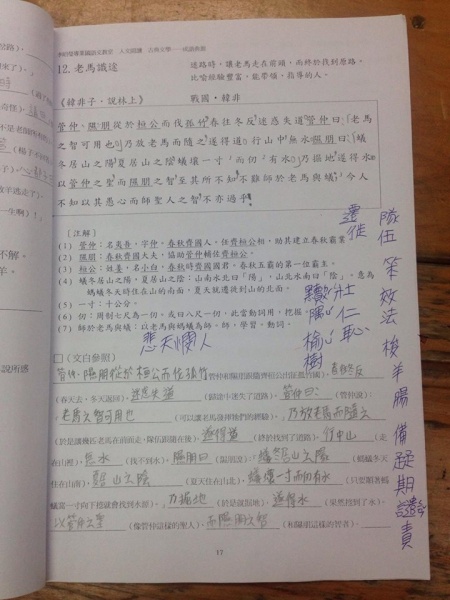 12. 老馬識途
迷路時，讓老馬走在前頭，而終於找到原路。
比喻經驗豐富，能帶領、指導的人。
《韓非子·說林上》 戰國·韓非
管仲、隰朋從於桓公而伐孤竹，春往冬反，迷惑失道。管仲曰：「老馬
之智可用也。」乃放老馬而隨之，遂得道。行山中無水，隰朋曰：「蟻
冬居山之陽，夏居山之陰，蟻壤一寸，而仞有水。」乃掘地，遂得水。
以管仲之聖而隰朋之智，至其所不知，不難師於老馬與蟻，今人
不知以其愚心而師聖人之智，不亦過乎？
〔注解〕
(1) 管仲：名夷吾，字仲，春秋齊國人，任齊桓公相，助其建立春秋霸業。
(2) 隰朋：春秋齊國大夫，協助管仲輔佐齊桓公。
(3) 桓公：姓姜，名小白，春秋時齊國國君，春秋五霸的第一位霸主。
(4) 蟻冬居山之陽，夏居山之陰：山南水北曰「陽」，山北水南曰「陰」，意為
螞蟻冬天時住在山的南面，夏天就遷徙到山的北面。
(5) 一寸：十公分。
(6) 仞：周制七尺為一仞，或曰八尺一仞，此當動詞用，挖掘。
(7) 師於老馬與蟻：以老馬與螞蟻為師。師，學習，動詞。
遷徙
隊伍
效法
羊腸
備
期
責
壯
仁
心
榆樹
悲天憫人
□〈文白對照〉
管仲、隰朋從於桓公而伐孤竹（管仲和隰朋跟隨齊桓公討伐孤竹國），春往冬反
（春天去，冬天返回），迷惑失道（歸途中迷失了道路）。管仲曰：（管仲說）：
老馬之智可用也（可以讓老馬發揮牠們的經驗）。乃放老馬而隨之
（於是讓幾匹老馬在前面走，隊伍跟隨在後），遂得道（終於找到了道路）。行山中（走
在山裡），無水（找不到水），隰朋曰（隰朋說）：蟻冬居山之陽（螞蟻冬天
住在山南），夏居山之陰（夏天住在山北），蟻壤一寸而仞有水（只要順著螞
蟻窩一寸向下挖就會找到水源）。乃掘地（於是就掘地），遂得水（果然挖到了水）。
以管仲之聖（像管仲這樣的聖人），而隰朋之智（和隰朋這樣的智者），
17